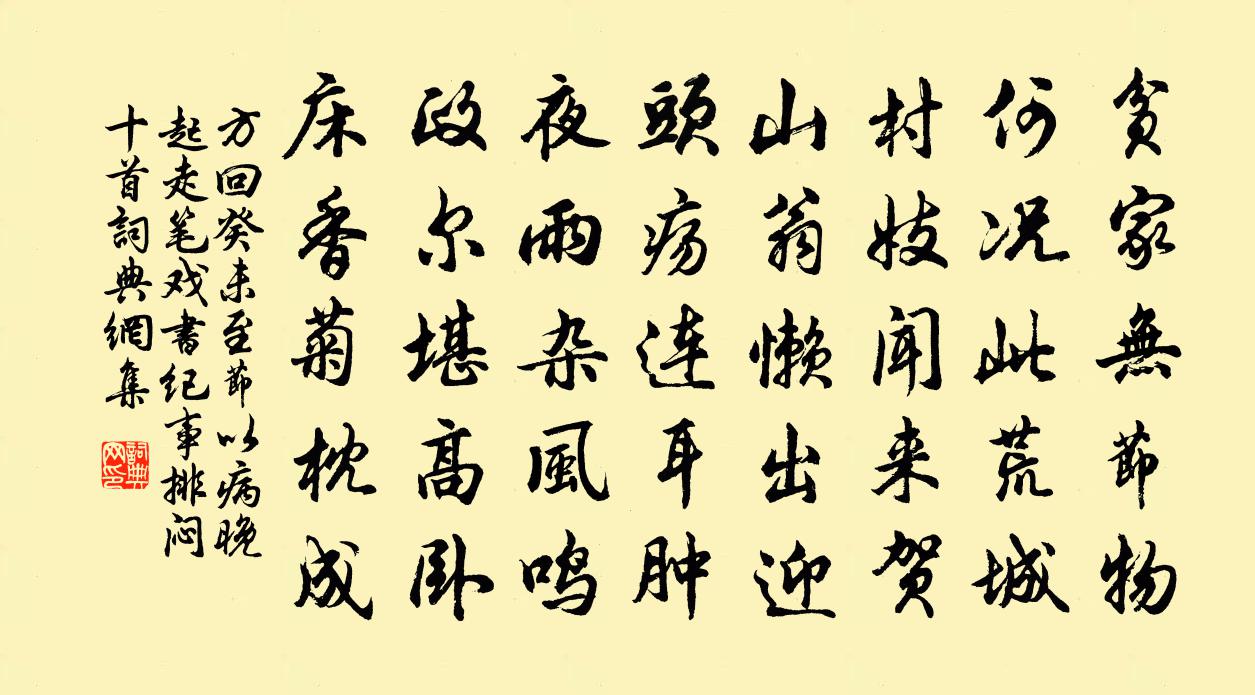 贫家無節物
何况此荒城
村妓闻来贺
山翁懒出迎
頭疡连耳肿
夜雨杂風鸣
政尔堪高卧
床香菊枕成
方回癸未至節以病晚
起走笔戏書纪事排闷
十首詞典網集
詞典網印